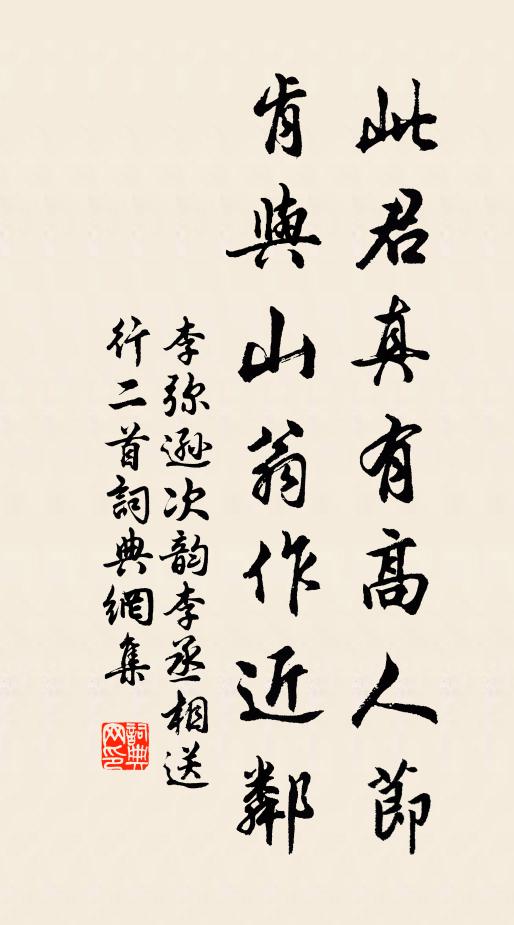 此君真有高人節
肯與山翁作近鄰
李弥遜次韵李丞相送
行二首詞典網集
詞典
网印